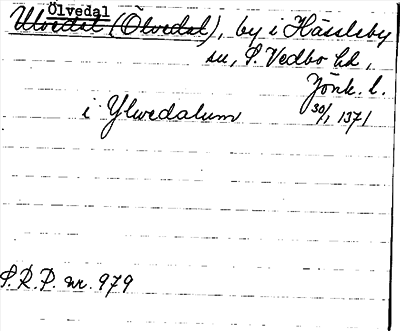 Ölvedal
Ulvedal (Ölvedal), by i Hässleby
sn, S. Vedbo hd,
Jönk. l.
i Ylwedalum 30/1 1371
S.R.P. nr. 979